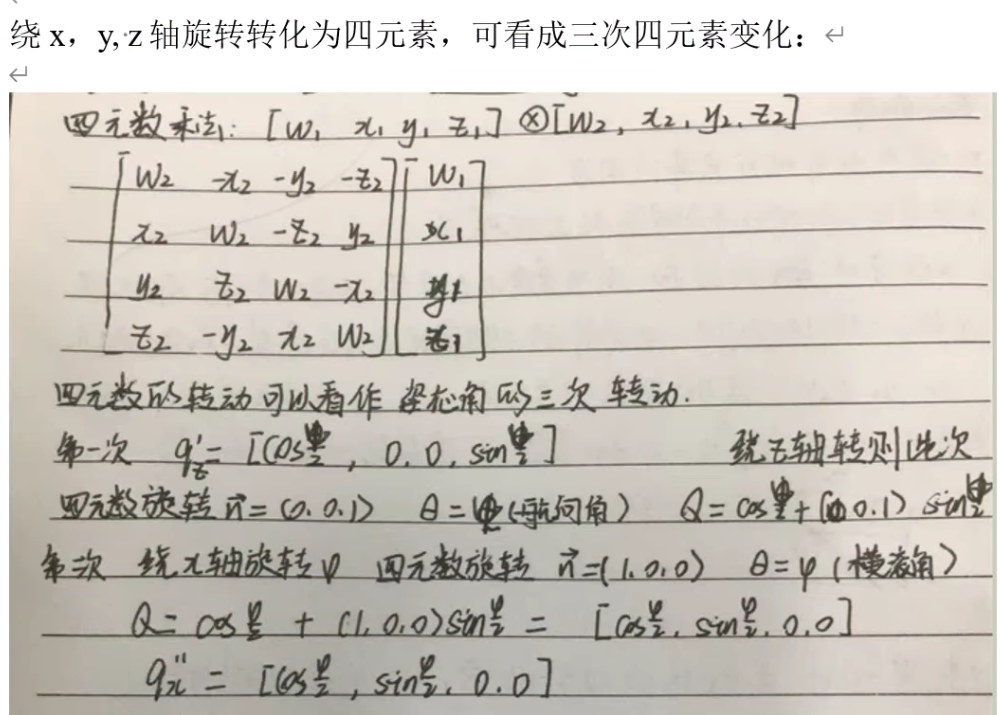 绕 x，y, z 轴旋转转化为四元素，可看成三次四元素变化：
四元数乘法: [W₁ x₁ y₁ z₁] ⊗ [W₂, x₂, y₂, z₂]
[W₂ -x₂ -y₂ -z₂] [W₁]
[x₂ W₂ -z₂ y₂] [x₁]
[y₂ z₂ W₂ -x₂] [y₁]
[z₂ -y₂ x₂ W₂] [z₁]
四元数的转动可以看作 坐标角的三次 转动.
第一次 q'z = [cosψ/2, 0, 0, sinψ/2] 绕z轴转则此次
四元数旋转 n⃗=(0.0.1) θ=ψ(航向角) Q=cosψ/2+(0 0.1) sinψ/2
第二次 绕x轴旋转φ 四元数旋转 n⃗=(1.0.0) θ=φ (横滚角)
Q= cosφ/2 + (1,0,0)sinφ/2 = [cosφ/2, sinφ/2, 0,0]
q''x = [cosφ/2, sinφ/2, 0.0]